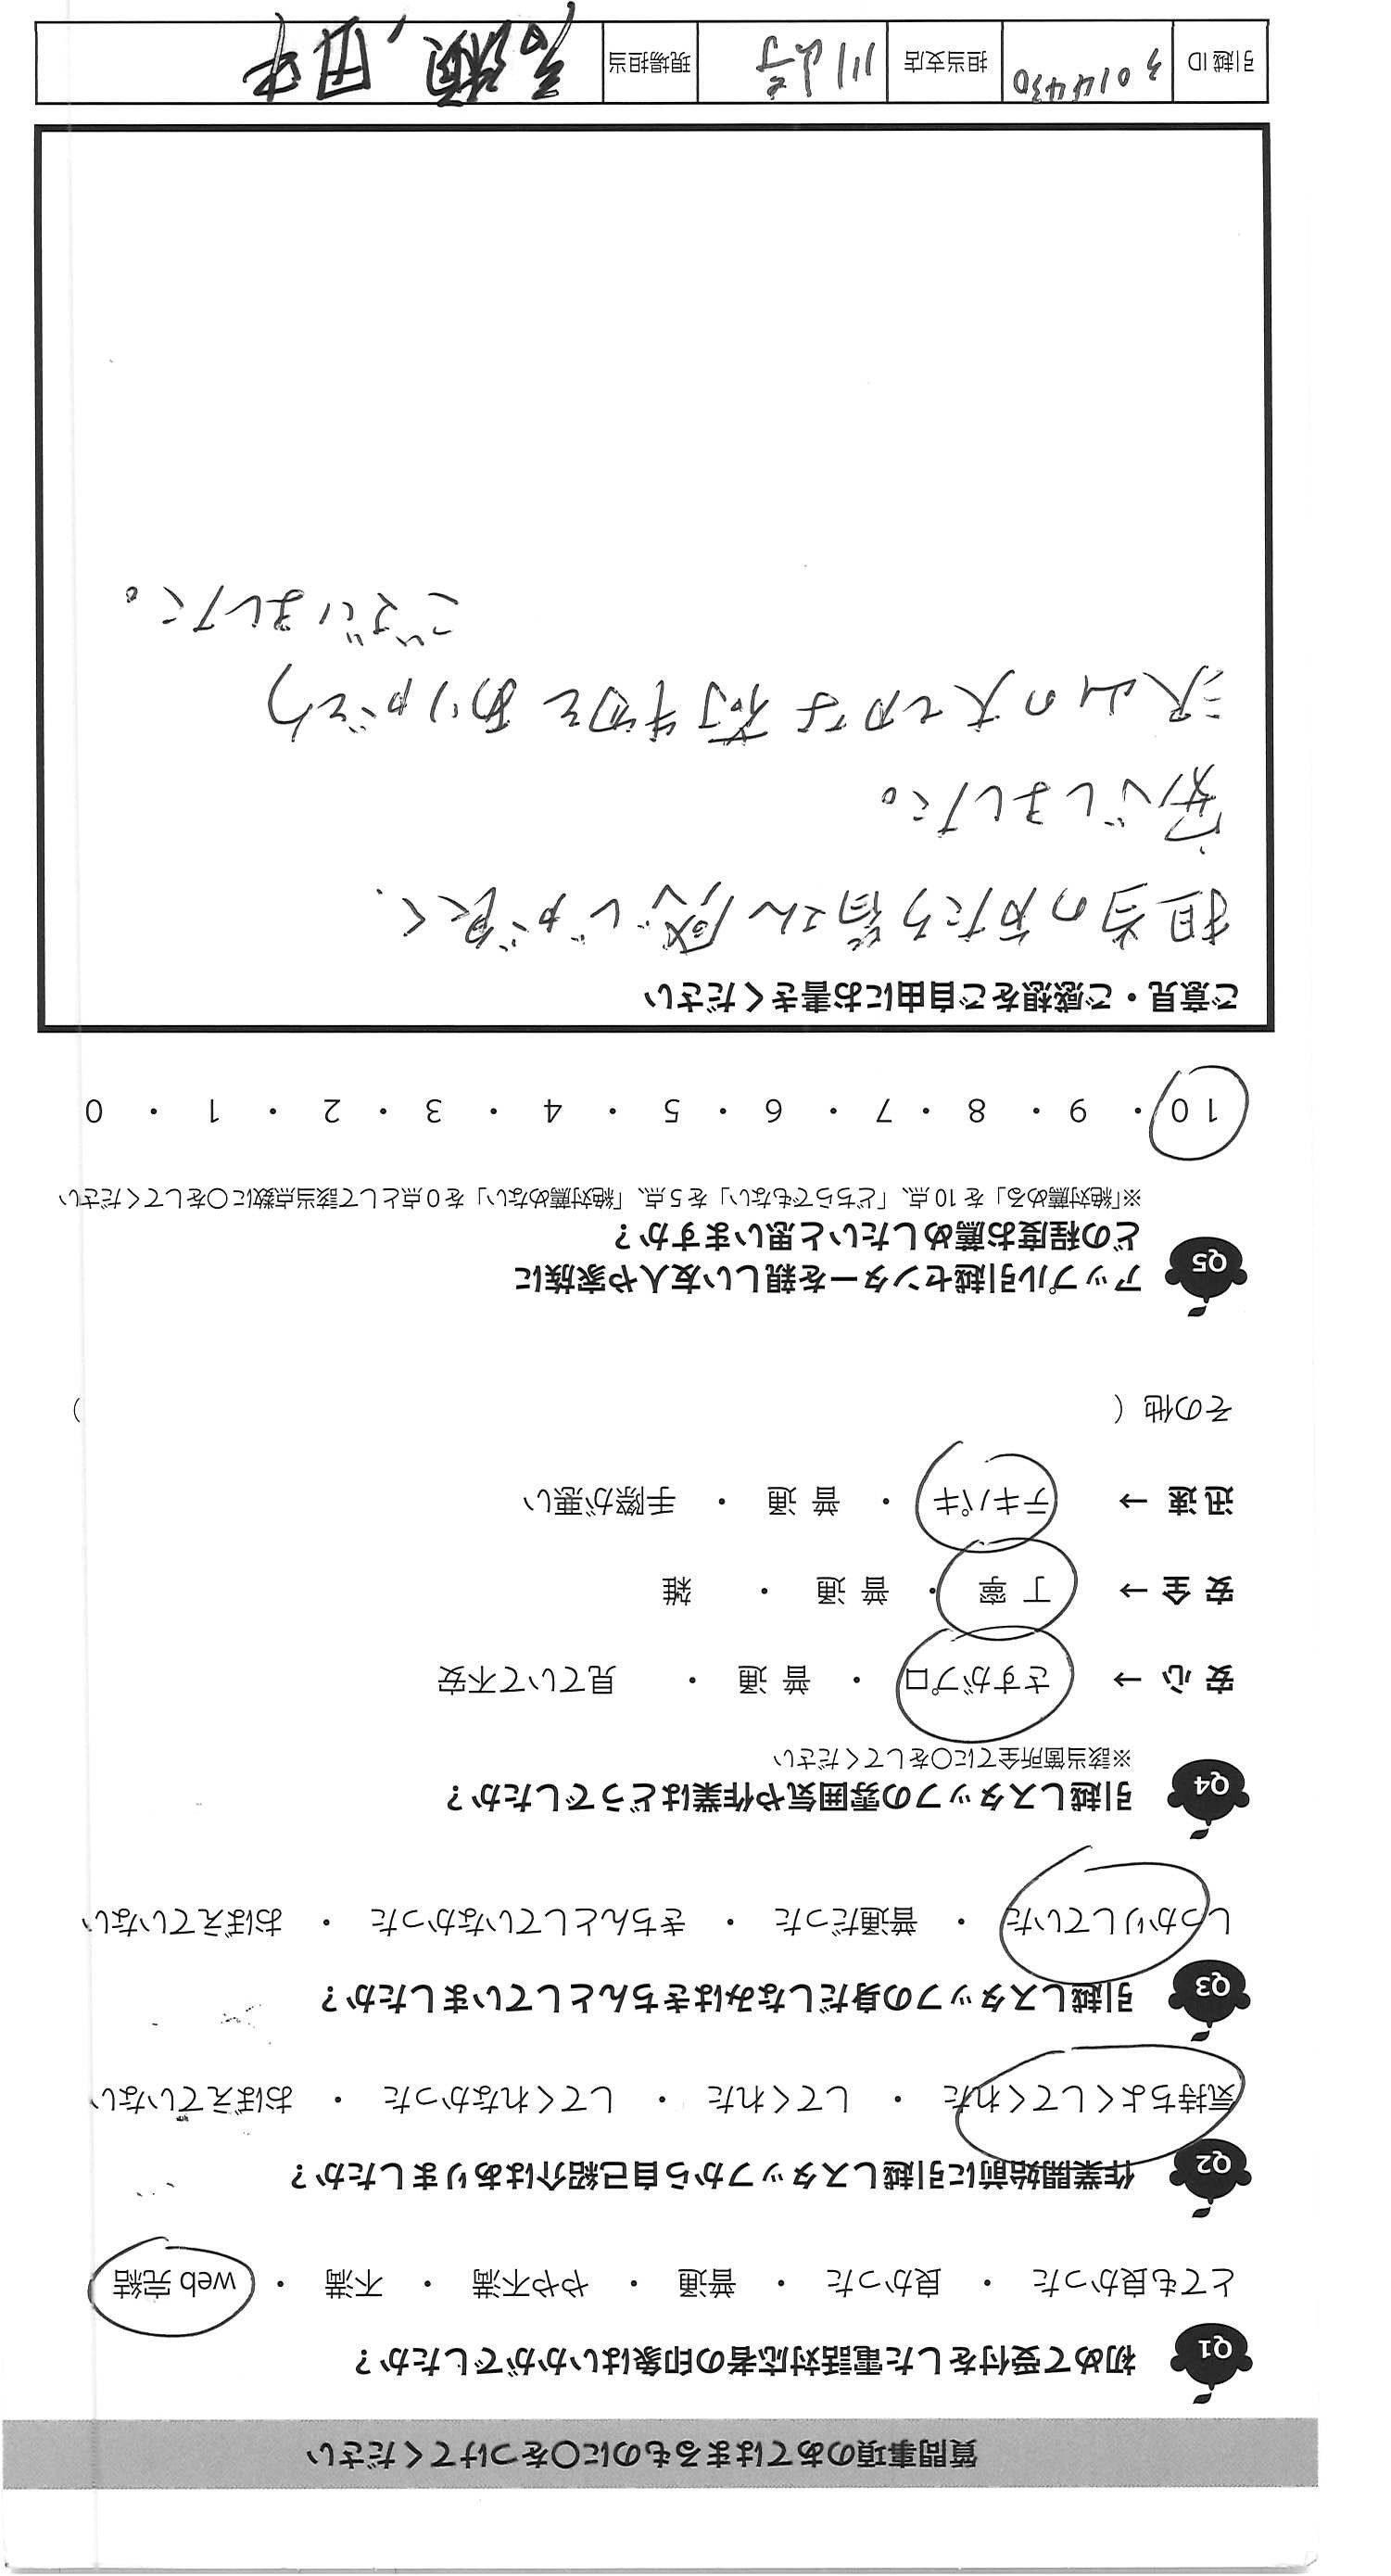 質問事項のあてはまるものに〇をつけてください
Q1 初めて受付をした電話対応者の印象はいかがでしたか？
とても良かった ・ 良かった ・ 普通 ・ やや不満 ・ 不満 ・ web 完結
Q2 作業開始前に引越しスタッフから自己紹介はありましたか？
気持ちよくしてくれた ・ してくれた ・ してくれなかった ・ おぼえていない
Q3 引越しスタッフの身だしなみはきちんとしていましたか？
しっかりしていた ・ 普通だった ・ きちんとしていなかった ・ おぼえていない
Q4 引越しスタッフの雰囲気や作業はどうでしたか？
※該当箇所全てに〇をしてください
安 心 → さすがプロ ・ 普 通 ・ 見ていて不安
安 全 → 丁 寧 ・ 普 通 ・ 雑
迅 速 → テキパキ ・ 普 通 ・ 手際が悪い
その他（ ）
Q5 アップル引越センターを親しい友人や家族に
どの程度お薦めしたいと思いますか？
※「絶対薦める」を 10 点、「どちらでもない」を 5 点、「絶対薦めない」を 0 点として該当点数に〇をしてください
10 ・ 9 ・ 8 ・ 7 ・ 6 ・ 5 ・ 4 ・ 3 ・ 2 ・ 1 ・ 0
ご意見・ご感想をご自由にお書きください
担当のかたち皆さん感じが良く、
安心しました。
沢山の大切な荷物をありがとう
ございました。
引越 ID 3014430 担当支店 川崎 現場担当 高瀬, 田中